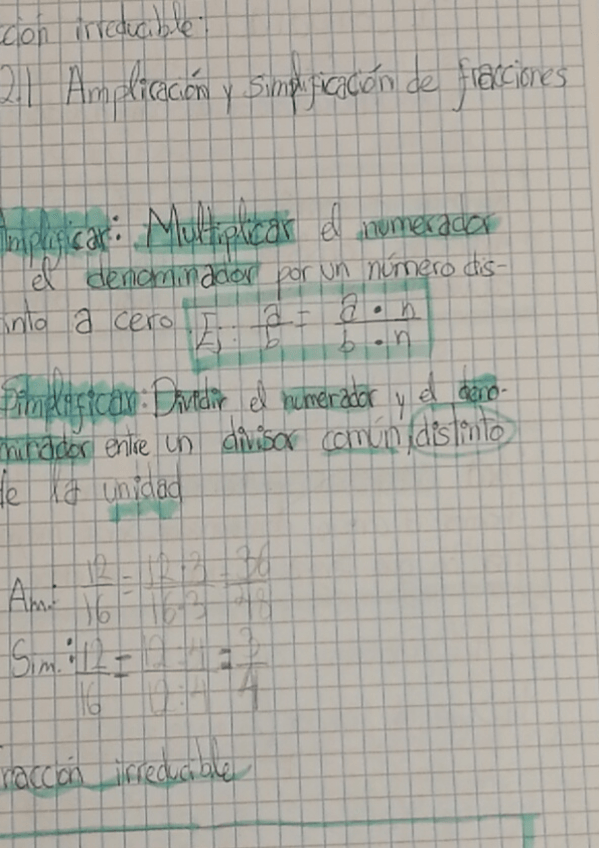 ción irreducible:
2.1 Amplicación y simplificación de fracciones
Amplificar: Multiplicar el numerador
el denominador por un número dis-
into a cero. Ej: a/b = a · n / b · n
Simplificar: Dividir el numerador y el deno-
minador entre un divisor común, distinto
de la unidad
Am: 12/16 = 12·3/16·3 = 36/48
Sim.: 12/16 = 12:4/12:4 = 3/4
racción irreducible